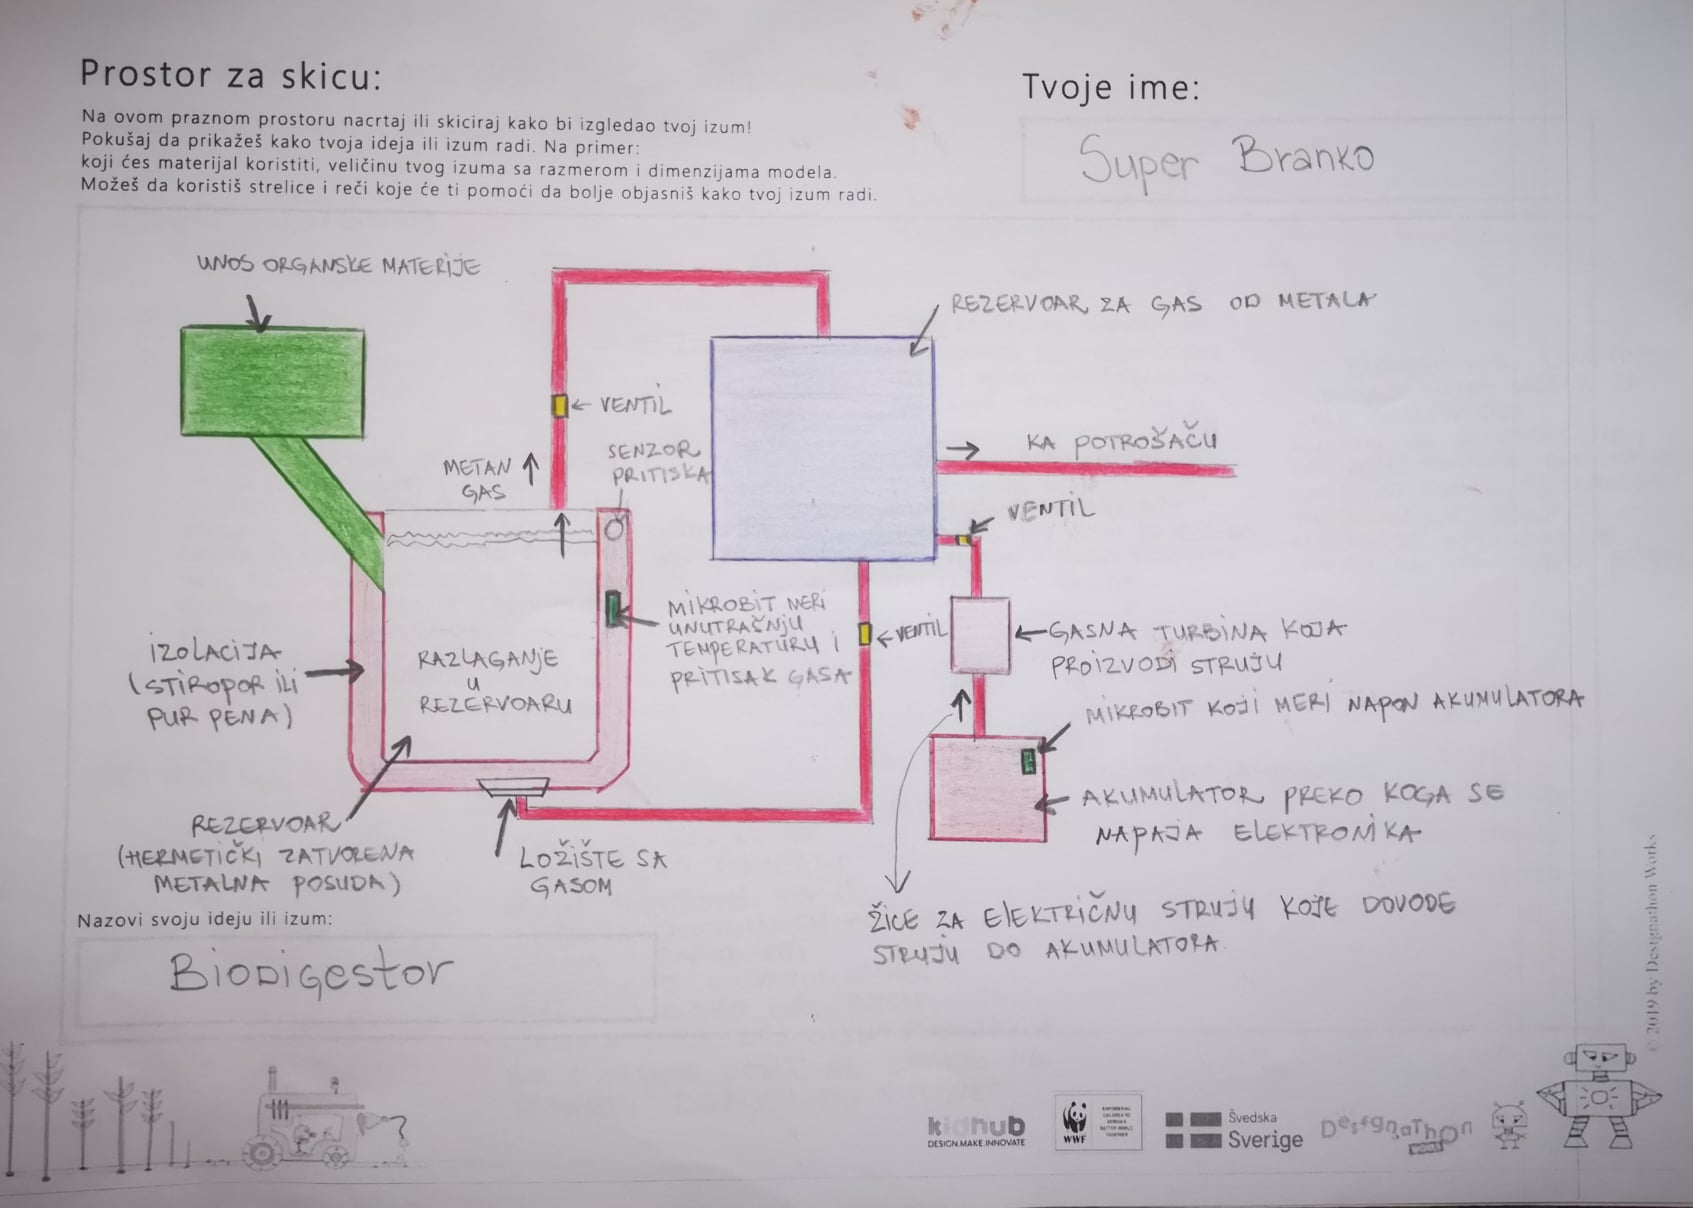 Prostor za skicu:
Na ovom praznom prostoru nacrtaj ili skiciraj kako bi izgledao tvoj izum!
Pokušaj da prikažeš kako tvoja ideja ili izum radi. Na primer:
koji ćes materijal koristiti, veličinu tvog izuma sa razmerom i dimenzijama modela.
Možeš da koristiš strelice i reči koje će ti pomoći da bolje objasniš kako tvoj izum radi.
Tvoje ime:
Super Branko
UNOS ORGANSKE MATERIJE
REZERVOAR ZA GAS OD METALA
VENTIL
METAN
GAS
SENZOR
PRITISKA
KA POTROŠAČU
VENTIL
MIKROBIT MERI
UNUTRAŠNJU
TEMPERATURU I
PRITISAK GASA
VENTIL
GASNA TURBINA KOJA
PROIZVODI STRUJU
IZOLACIJA
(STIROPOR ILI
PUR PENA)
RAZLAGANJE
U
REZERVOARU
MIKROBIT KOJI MERI NAPON AKUMULATORA
AKUMULATOR PREKO KOGA SE
NAPAJA ELEKTRONIKA
REZERVOAR
(HERMETIČKI ZATVORENA
METALNA POSUDA)
LOŽIŠTE SA
GASOM
ŽICE ZA ELEKTRIČNU STRUJU KOJE DOVODE
STRUJU DO AKUMULATORA
Nazovi svoju ideju ili izum:
BIODIGESTOR
© 2019 by Designathon Works
kidhub
DESIGN.MAKE.INNOVATE
WWF
Švedska
Sverige
DesignaThon
WORKS